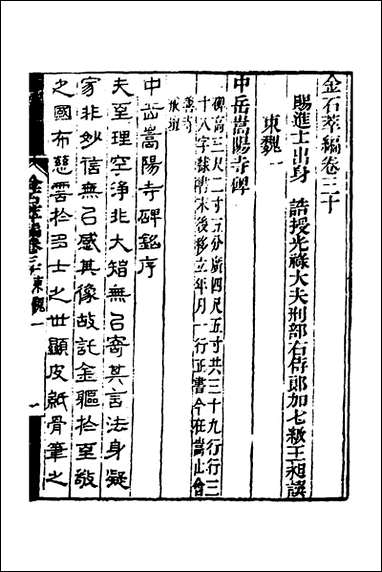 金石萃編卷三十
賜進士出身 誥授光祿大夫刑部右侍郎加七級王昶譔
東魏一
中岳嵩陽寺碑
碑高三尺二寸五分廣四尺五寸共三十九行行三
十八字隸書末後移立年月一行正書今在嵩山會
善寺
戒壇
中岳嵩陽寺碑銘序
夫至理空淨非大智無㠯寄其言法身凝
家非妙信無㠯感其像故託金軀於至欲
之國布慈雲於多士之世顯皮紙骨筆之
金石萃編卷三十 東魏一
一